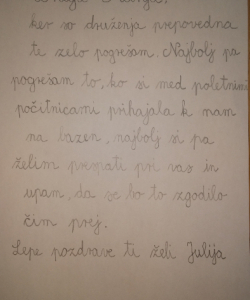 ker so druženja prepovedna
te zelo pogrešam. Najbolj pa
pogrešam to, ko si med poletnimi
počitnicami prihajala k nam
na bazen, najbolj si pa
želim prespati pri vas in
upam, da se bo to zgodilo
čim prej.
Lepe pozdrave ti želi Julija